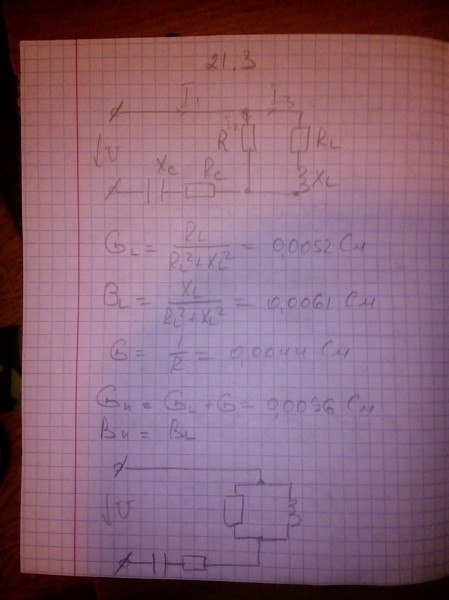 21.3
I₁ I₃
I₂
R R_L
↓U X_C R_C X_L
G_L = R_L / (R_L² + X_L²) = 0,0052 См
B_L = X_L / (R_L² + X_L²) = 0,0061 См
G = 1 / R = 0,0044 См
G_к = G_L + G = 0,0096 См
B_к = B_L
↓U